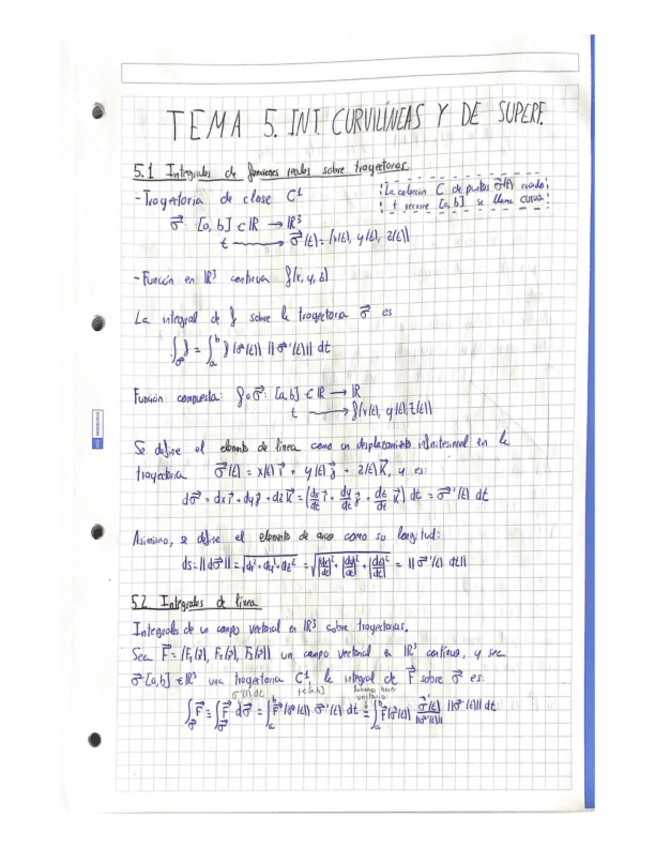 TEMA 5. INT. CURVILÍNEAS Y DE SUPERF.
5.1 Integrales de funciones reales sobre trayectorias
- Trayectoria de clase C¹
La colección C de puntos σ⃗(t) cuando
t recorre [a, b] se llama curva
σ⃗: [a, b] ⊂ ℝ → ℝ³
t → σ⃗(t) = (x(t), y(t), z(t))
- Función en ℝ³ continua f(x, y, z)
La integral de f sobre la trayectoria σ⃗ es
∫_σ⃗ f = ∫_a^b f(σ⃗(t)) ||σ⃗'(t)|| dt
Función compuesta: f∘σ⃗: [a, b] ⊂ ℝ → ℝ
t → f(x(t), y(t), z(t))
Se define el elemento de línea como un desplazamiento infinitesimal en la
trayectoria σ⃗(t) = x(t) i⃗ + y(t) j⃗ + z(t) k⃗, y es:
dσ⃗ = dx i⃗ + dy j⃗ + dz k⃗ = (dx/dt i⃗ + dy/dt j⃗ + dz/dt k⃗) dt = σ⃗'(t) dt
Asimismo, se define el elemento de arco como su longitud:
ds = ||dσ⃗|| = √(dx² + dy² + dz²) = √((dx/dt)² + (dy/dt)² + (dz/dt)²) = ||σ⃗'(t) dt||
5.2 Integrales de línea
Integrales de un campo vectorial en ℝ³ sobre trayectorias.
Sea F⃗ = (F₁(x⃗), F₂(x⃗), F₃(x⃗)) un campo vectorial en ℝ³ continuo, y sea
σ⃗: [a, b] ∈ ℝ³ una trayectoria C¹, la integral de F⃗ sobre σ⃗ es:
σ⃗'(t) dt t ∈ [a, b] hacer unitario
∫_σ⃗ F⃗ = ∫_σ⃗ F⃗ dσ⃗ = ∫_a^b F⃗(σ⃗(t)) σ⃗'(t) dt = ∫_a^b F⃗(σ⃗(t)) σ⃗'(t)/||σ⃗'(t)|| ||σ⃗'(t)|| dt